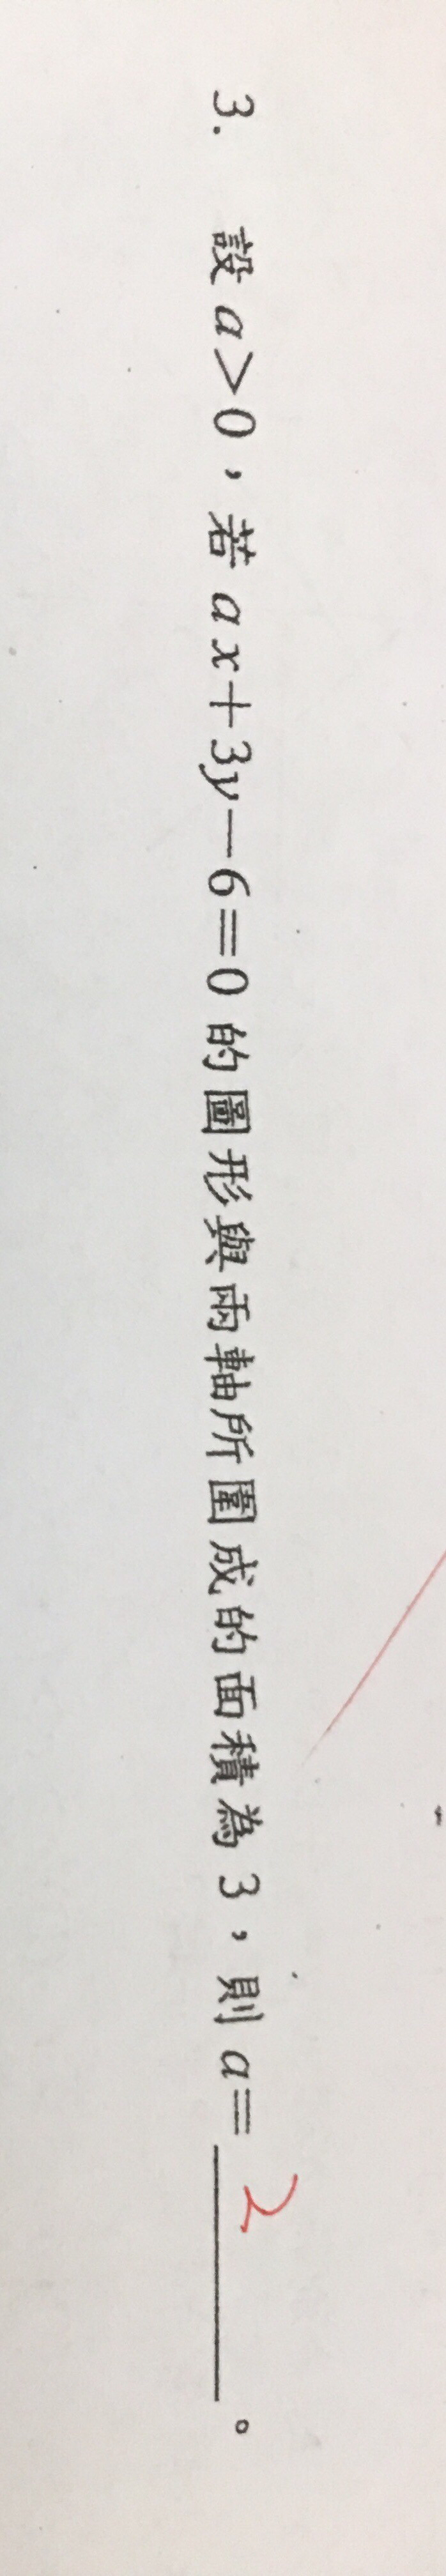 3. 設 a>0，若 ax+3y-6=0 的圖形與兩軸所圍成的面積為 3，則 a= 2 。